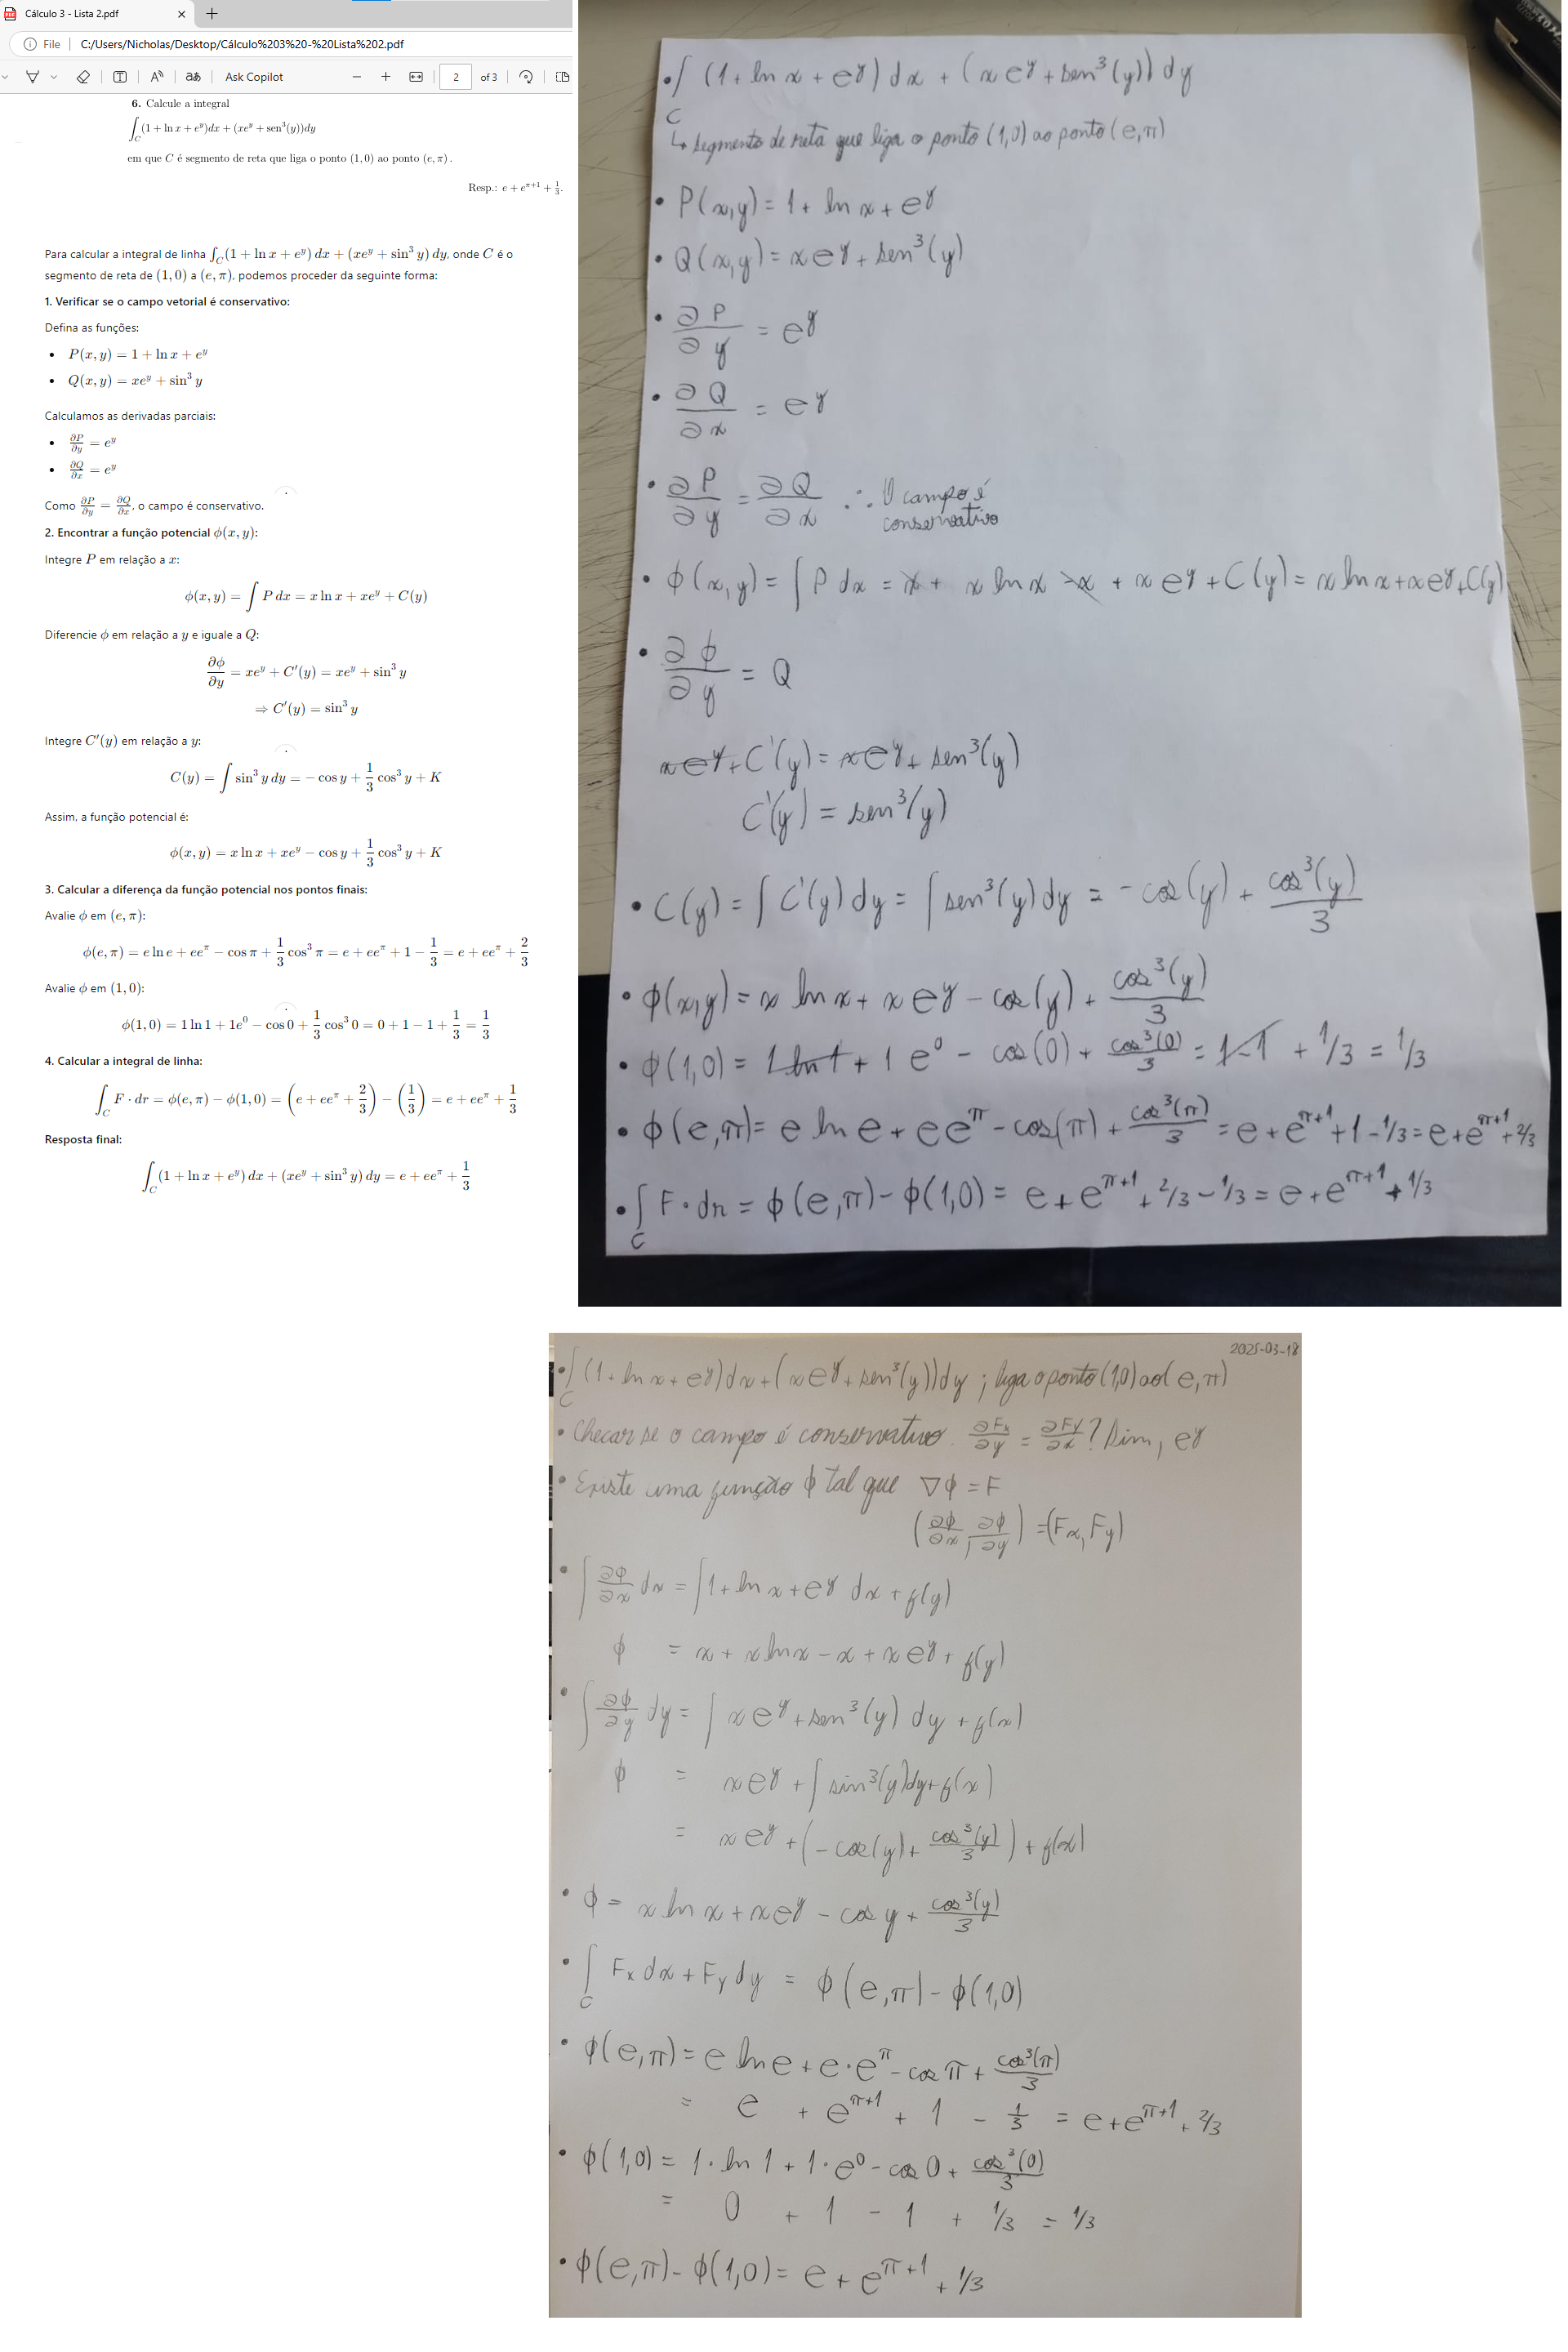 Cálculo 3 - Lista 2.pdf
File | C:/Users/Nicholas/Desktop/Cálculo%203%20-%20Lista%202.pdf
Ask Copilot 2 of 3
6. Calcule a integral
∫_C (1 + ln x + e^y)dx + (xe^y + sen³(y))dy
em que C é segmento de reta que liga o ponto (1, 0) ao ponto (e, π).
Resp.: e + e^{π+1} + 1/3.
Para calcular a integral de linha ∫_C (1 + ln x + e^y) dx + (xe^y + sin³ y) dy, onde C é o
segmento de reta de (1, 0) a (e, π), podemos proceder da seguinte forma:
1. Verificar se o campo vetorial é conservativo:
Defina as funções:
• P(x, y) = 1 + ln x + e^y
• Q(x, y) = xe^y + sin³ y
Calculamos as derivadas parciais:
• ∂P/∂y = e^y
• ∂Q/∂x = e^y
Como ∂P/∂y = ∂Q/∂x, o campo é conservativo.
2. Encontrar a função potencial ϕ(x, y):
Integre P em relação a x:
ϕ(x, y) = ∫ P dx = x ln x + xe^y + C(y)
Diferencie ϕ em relação a y e iguale a Q:
∂ϕ/∂y = xe^y + C'(y) = xe^y + sin³ y
⇒ C'(y) = sin³ y
Integre C'(y) em relação a y:
C(y) = ∫ sin³ y dy = − cos y + 1/3 cos³ y + K
Assim, a função potencial é:
ϕ(x, y) = x ln x + xe^y − cos y + 1/3 cos³ y + K
3. Calcular a diferença da função potencial nos pontos finais:
Avalie ϕ em (e, π):
ϕ(e, π) = e ln e + ee^π − cos π + 1/3 cos³ π = e + ee^π + 1 − 1/3 = e + ee^π + 2/3
Avalie ϕ em (1, 0):
ϕ(1, 0) = 1 ln 1 + 1e^0 − cos 0 + 1/3 cos³ 0 = 0 + 1 − 1 + 1/3 = 1/3
4. Calcular a integral de linha:
∫_C F · dr = ϕ(e, π) − ϕ(1, 0) = (e + ee^π + 2/3) − (1/3) = e + ee^π + 1/3
Resposta final:
∫_C (1 + ln x + e^y) dx + (xe^y + sin³ y) dy = e + ee^π + 1/3
• ∫_C (1 + ln x + e^y) dx + (x e^y + sen³(y)) dy
↳ segmento de reta que liga o ponto (1,0) ao ponto (e,π)
• P(x,y) = 1 + ln x + e^y
• Q(x,y) = x e^y + sen³(y)
• ∂P/∂y = e^y
• ∂Q/∂x = e^y
• ∂P/∂y = ∂Q/∂x ∴ O campo é
conservativo
• ϕ(x,y) = ∫ P dx = x + x ln x − x + x e^y + C(y) = x ln x + x e^y + C(y)
• ∂ϕ/∂y = Q
x e^y + C'(y) = x e^y + sen³(y)
C'(y) = sen³(y)
• C(y) = ∫ C'(y) dy = ∫ sen³(y) dy = −cos(y) + cos³(y)/3
• ϕ(x,y) = x ln x + x e^y − cos(y) + cos³(y)/3
• ϕ(1,0) = 1 ln 1 + 1 e^0 − cos(0) + cos³(0)/3 = 1 − 1 + 1/3 = 1/3
• ϕ(e,π) = e ln e + e e^π − cos(π) + cos³(π)/3 = e + e^{π+1} + 1 − 1/3 = e + e^{π+1} + 2/3
• ∫_C F · dr = ϕ(e,π) − ϕ(1,0) = e + e^{π+1} + 2/3 − 1/3 = e + e^{π+1} + 1/3
2025-03-18
• ∫_C (1 + ln x + e^y) dx + (x e^y + sen³(y)) dy ; liga o ponto (1,0) ao (e,π)
• Checar se o campo é conservativo. ∂Fx/∂y = ∂Fy/∂x? Sim, e^y
• Existe uma função ϕ tal que ∇ϕ = F
(∂ϕ/∂x, ∂ϕ/∂y) = (Fx, Fy)
• ∫ ∂ϕ/∂x dx = ∫ 1 + ln x + e^y dx + f(y)
ϕ = x + x ln x − x + x e^y + f(y)
• ∫ ∂ϕ/∂y dy = ∫ x e^y + sen³(y) dy + f(x)
ϕ = x e^y + ∫ sin³(y) dy + f(x)
= x e^y + (−cos(y) + cos³(y)/3) + f(x)
• ϕ = x ln x + x e^y − cos y + cos³(y)/3
• ∫_C Fx dx + Fy dy = ϕ(e,π) − ϕ(1,0)
• ϕ(e,π) = e ln e + e · e^π − cos π + cos³(π)/3
= e + e^{π+1} + 1 − 1/3 = e + e^{π+1} + 2/3
• ϕ(1,0) = 1 · ln 1 + 1 · e^0 − cos 0 + cos³(0)/3
= 0 + 1 − 1 + 1/3 = 1/3
• ϕ(e,π) − ϕ(1,0) = e + e^{π+1} + 1/3